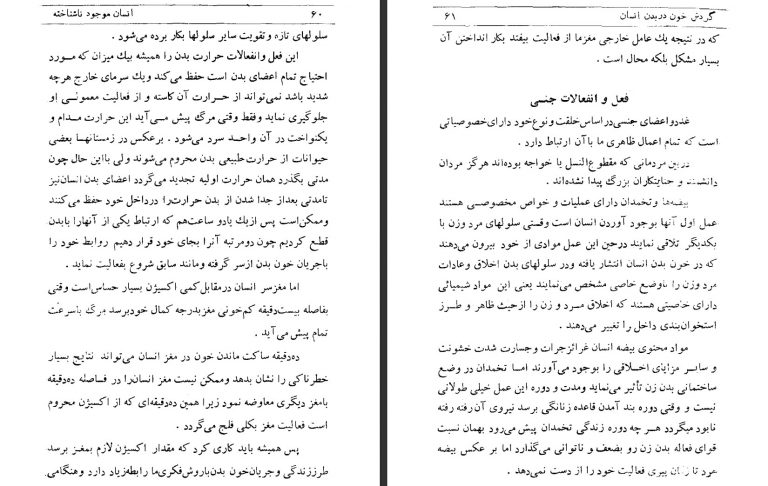 انسان موجود ناشناخته
۶۰
سلولهای تازه وتقویت سایر سلولها بکار برده می‌شود .
این فعل وانفعالات حرارت بدن را همیشه بیك میزان که مورد
احتیاج تمام اعضای بدن است حفظ می‌کند ویك سرمای خارج هرچه
شدید باشد نمی‌تواند از حرارت آن کاسته و از فعالیت معمولی او
جلوگیری نماید وفقط وقتی مرگ پیش می‌آید این حرارت مدام و
یکنواخت در آن واحد سرد می‌شود . برعکس در زمستانها بعضی
حیوانات از حرارت طبیعی بدن محروم می‌شوند ولی بااین حال چون
مدتی بگذرد همان حرارت اولیه تجدید می‌گردد اعضای بدن انسان‌نیز
تامدتی بعداز جدا شدن از بدن حرارت‌را درداخل خود حفظ می‌کنند
وممکن‌است پس ازیك یادو ساعت‌هم که ارتباط یکی از آنهارا بابدن
قطع کردیم چون دومرتبه آنرا بجای خود قرار دهیم روابط خود را
باجریان خون بدن ازسر گرفته ومانند سابق شروع بفعالیت نماید .
اما مغزسر انسان درمقابل‌کمی اکسیژن بسیار حساس‌است وقتی
بفاصله بیست‌دقیقه کم‌خونی مغزبدرجه کمال خودبرسد مرگ باسرعت
تمام پیش می‌آید .
ده‌دقیقه ساکت ماندن خون در مغز انسان می‌تواند نتایج بسیار
خطرناکی را نشان بدهد وممکن نیست مغز انسان‌را در فاصله ده‌دقیقه
بامغز دیگری معاوضه نمود زیرا همین ده‌دقیقه‌ای که از اکسیژن محروم
است فعالیت مغز بکلی فلج می‌گردد .
پس همیشه باید کاری کرد که مقدار اکسیژن لازم بمغز برسد
طرززندگی وجریان‌خون بدن‌باروش‌فکری‌ما رابطه‌زیاد دارد وهنگامی
گردش خون دربدن انسان
۶۱
که در نتیجه یك عامل خارجی مغزما از فعالیت بیفتد بکار انداختن آن
بسیار مشکل بلکه محال است .
فعل و انفعالات جنسی
غدد‌واعضای جنسی‌دراساس‌خلقت ونوع‌خود دارای‌خصوصیاتی
است که تمام اعمال ظاهری ما باآن ارتباط دارد .
دربین مردمانی که مقطوع‌النسل یا خواجه بوده‌اند هرگز مردان
دانشمند و جنایتکاران بزرگ پیدا نشده‌اند .
بیضه‌ها وتخمدان دارای عملیات و خواص مخصوصی هستند
عمل اول آنها بوجود آوردن انسان است وقتی سلولهای مرد وزن با
یکدیگر تلاقی نمایند درحین این عمل موادی از خود بیرون می‌دهند
که در خون بدن انسان انتشار یافته ودر سلولهای بدن اخلاق وعادات
مرد وزن را باوضع خاصی مشخص می‌نمایند یعنی این مواد شیمیائی
دارای خاصیتی هستند که اخلاق مرد و زن را ازحیث ظاهر و طرز
استخوان‌بندی داخل را تغییر می‌دهند .
مواد محتوی بیضه انسان غرائزجرات وجسارت شدت خشونت
و سایر مزایای اخلاقی را بوجود می‌آورند اما تخمدان در وضع
ساختمانی بدن زن تأثیر می‌نماید ومدت و دوره این عمل خیلی طولانی
نیست و وقتی دوره بند آمدن قاعده زنانگی برسد نیروی آن رفته رفته
نابود میگردد هر چه دوره زندگی تخمدان پیش می‌رود بهمان نسبت
قوای فعاله بدن زن رو بضعف و ناتوانی می‌گذارد اما بر عکس بیضه
مرد تا زمان پیری فعالیت خود را از دست نمی‌دهد .